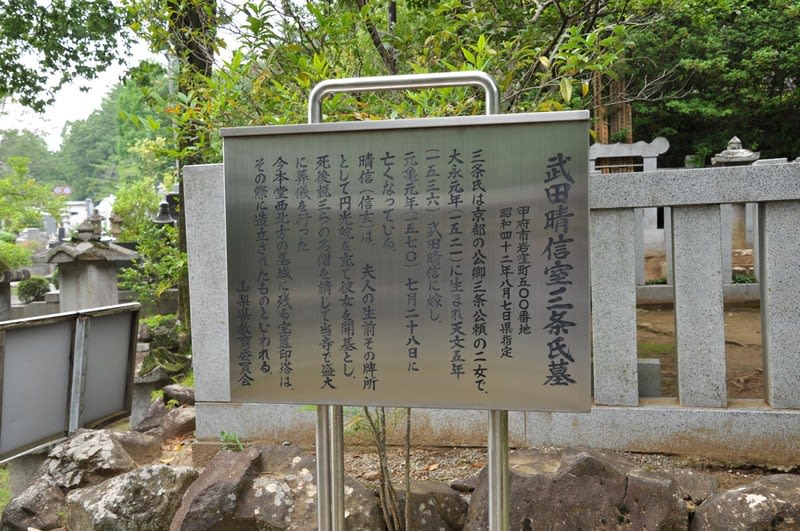 武田晴信室三条氏墓
甲府市岩窪町五〇〇番地
昭和四十二年八月七日県指定
三条氏は京都の公卿三条公頼の二女で、
大永元年(一五二一)に生まれ天文五年
(一五三六)武田晴信に嫁し、
元亀元年(一五七〇)七月二十八日に
亡くなっている。
晴信(信玄)は、夫人の生前その牌所
として円光院を充て彼女を開基とし、
死後説三らの名僧を請して当寺で盛大
に葬儀を行った
今本堂西北方の墓域に残る宝篋印塔は、
その際に造立されたものといわれる。
山梨県教育委員会